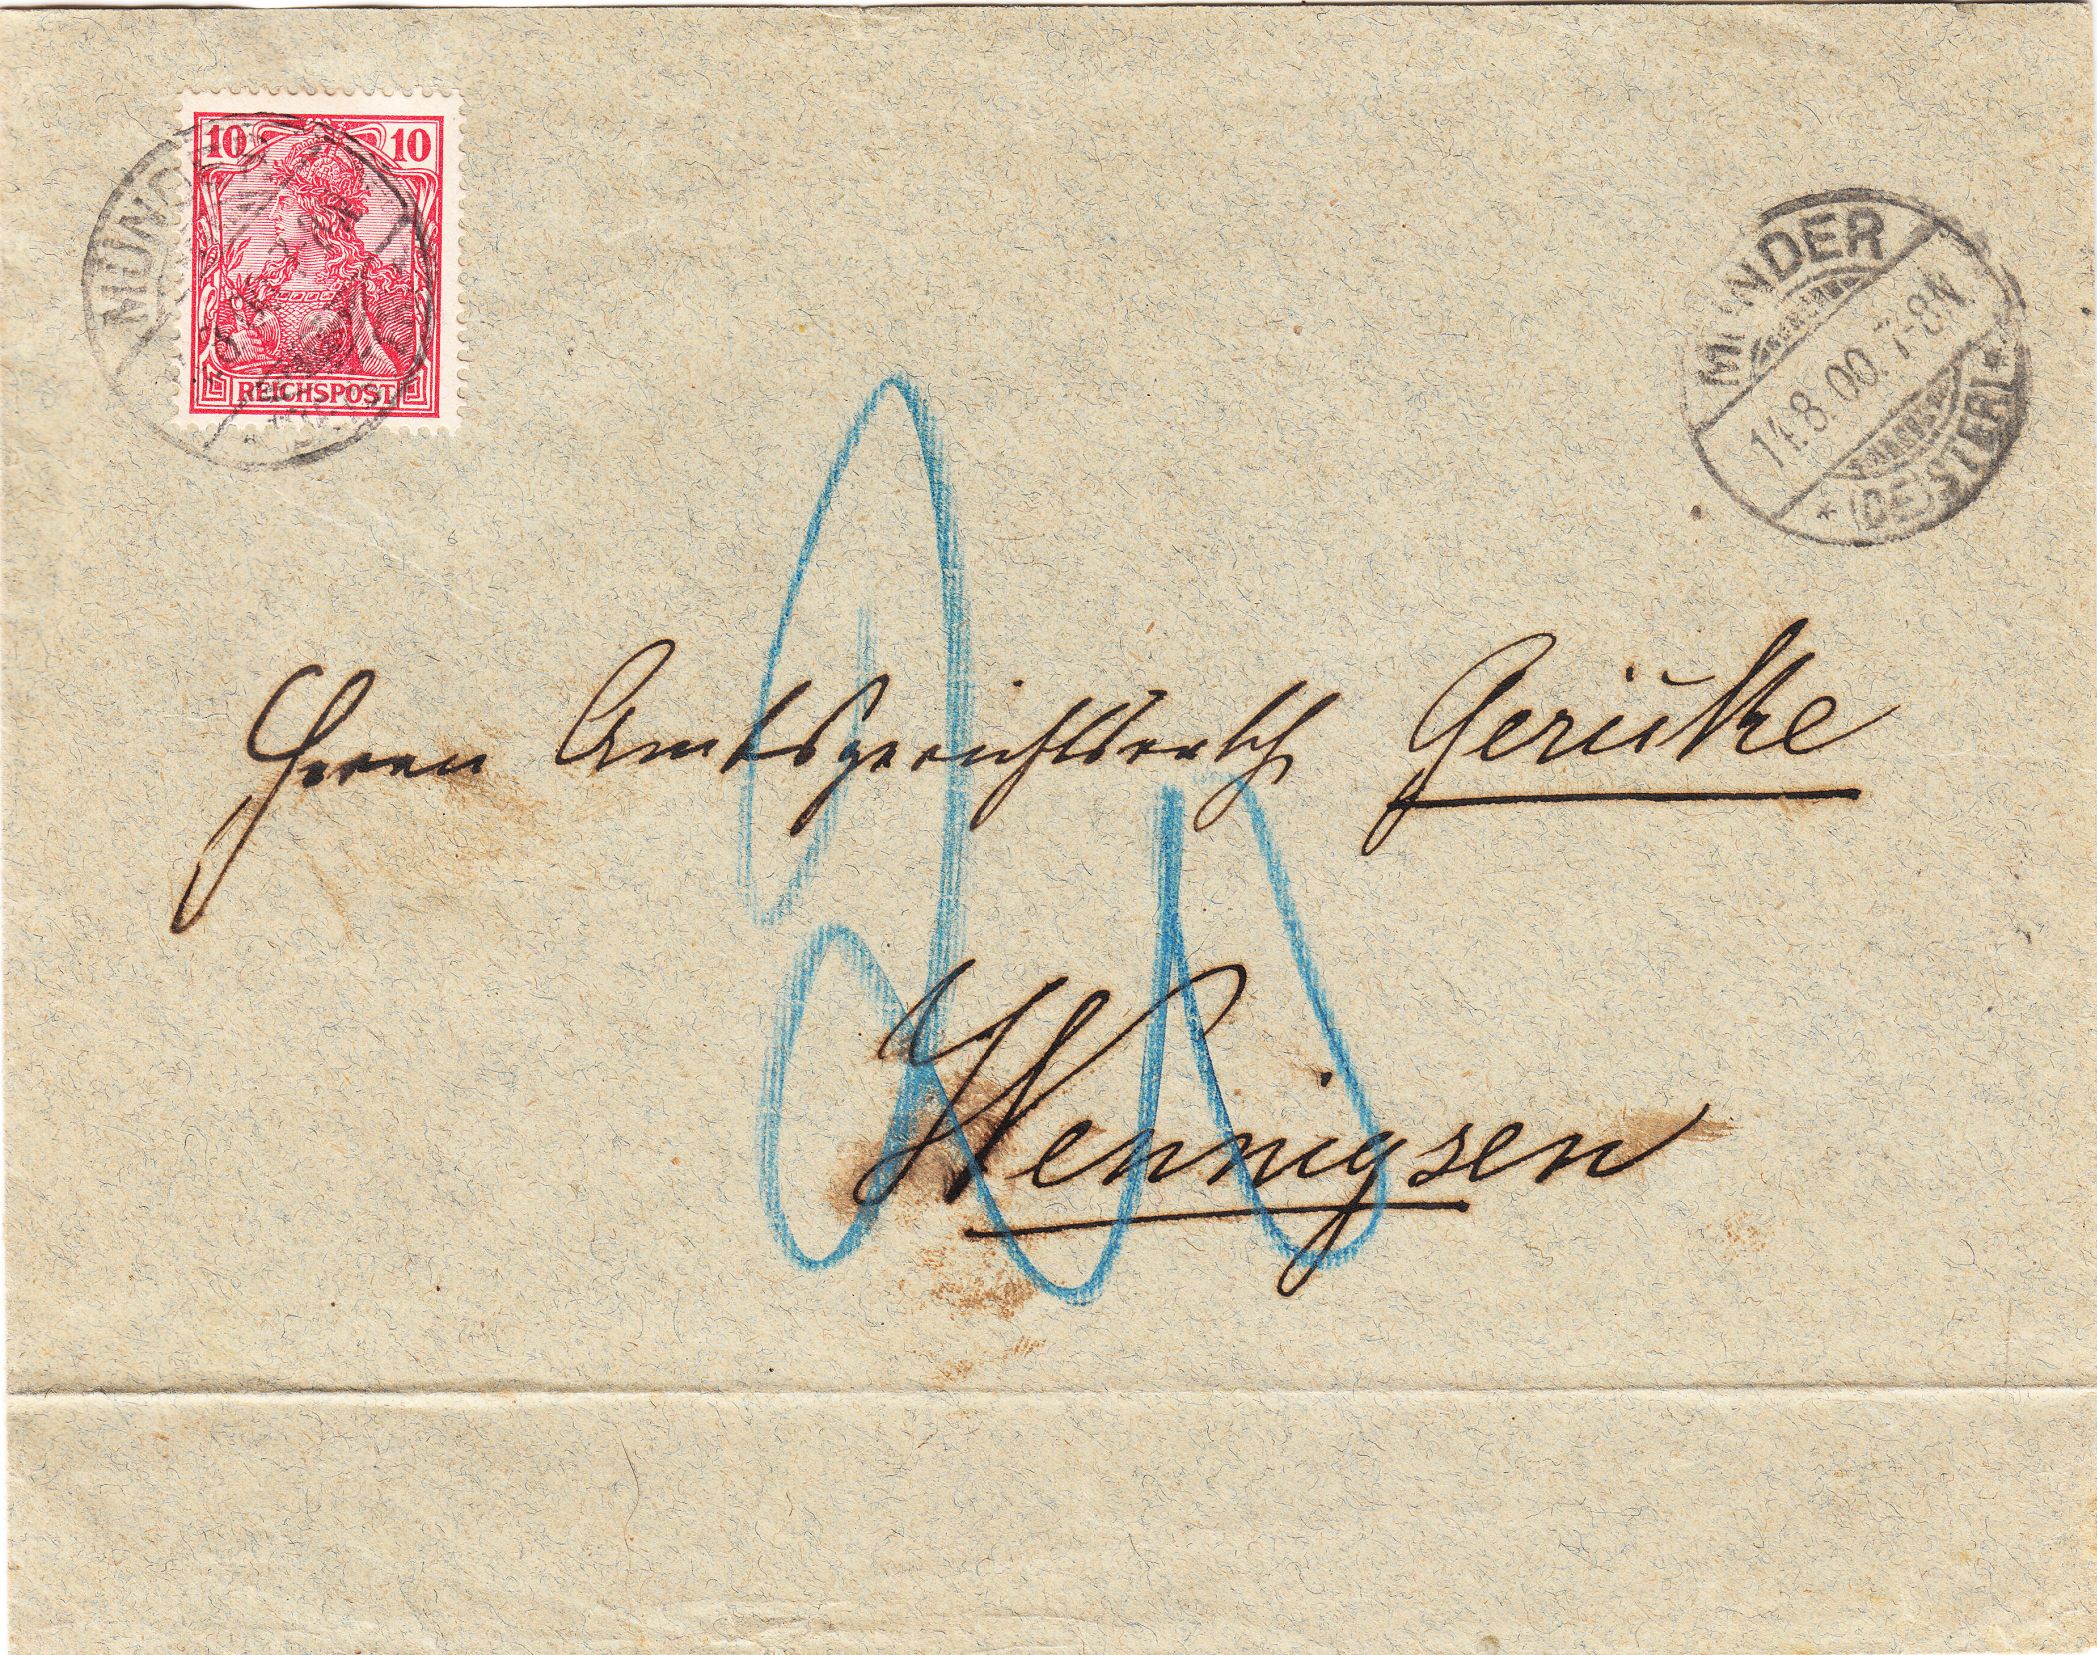 10 10
REICHSPOST
MÜNDER
14.8.00. 7-8N.
* (DEISTER) *
Herrn Amtsgerichtsrath Gericke
Wennigsen
20